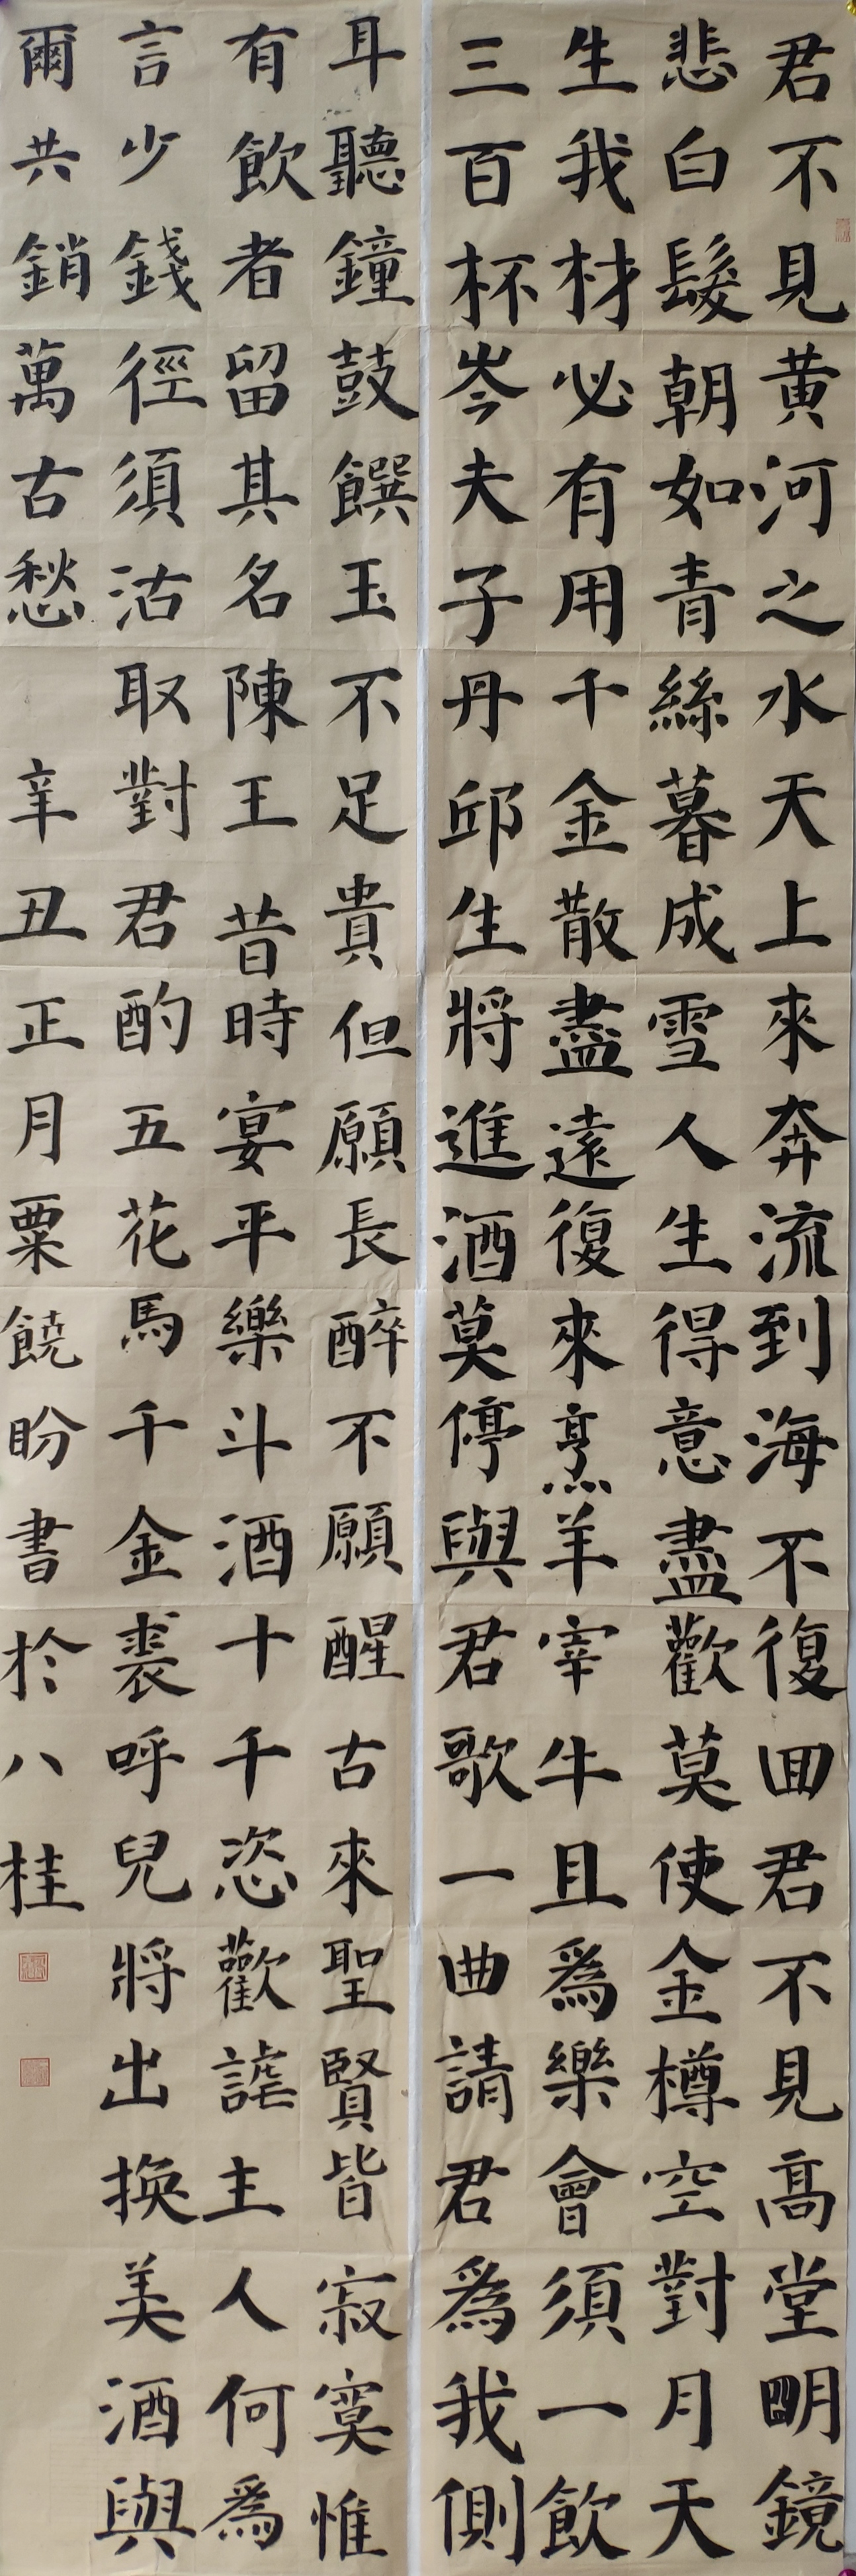 君不見黃河之水天上來奔流到海不復回君不見高堂明鏡
悲白髮朝如青絲暮成雪人生得意盡歡莫使金樽空對月天
生我材必有用千金散盡還復來烹羊宰牛且為樂會須一飲
三百杯岑夫子丹邱生將進酒莫停與君歌一曲請君為我側
耳聽鐘鼓饌玉不足貴但願長醉不願醒古來聖賢皆寂寞惟
有飲者留其名陳王昔時宴平樂斗酒十千恣歡謔主人何為
言少錢徑須沽取對君酌五花馬千金裘呼兒將出換美酒與
爾共銷萬古愁 辛丑正月粟饒盼書於八桂